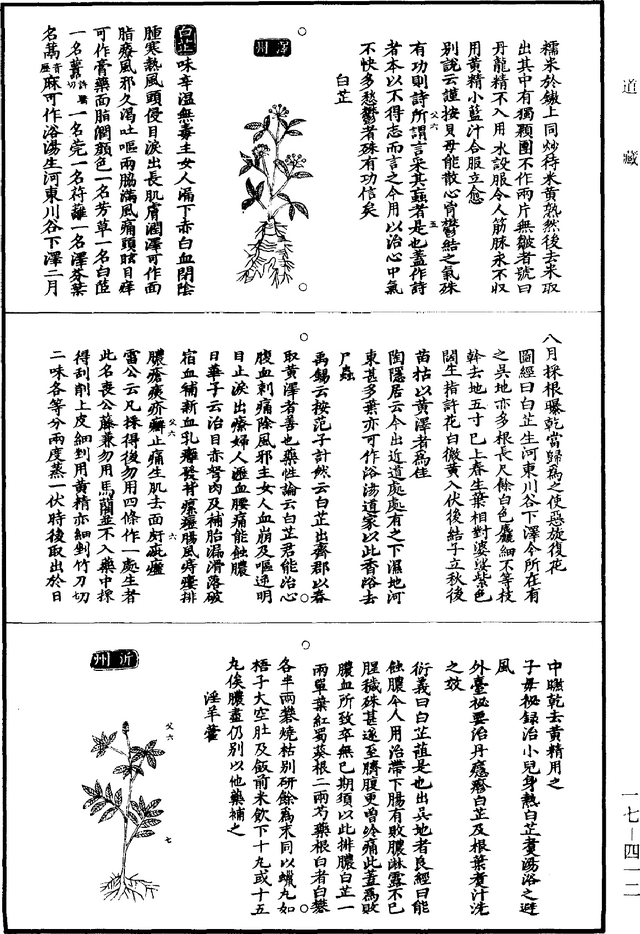 道藏
糯米於鏊上同炒待米黃熟然後去米取
出其中有獨顆團不作兩片無皺者號曰
丹龍精不入用水設服令人筋脉永不收
用黃精小藍汁合服立愈
別說云謹按貝母能散心胷鬱結之氣殊
有功則詩所謂言采其蝱者是也蓋作詩
者本以不得志而言之今用以治心中氣
不快多愁鬱者殊有功信矣
父六
五
白芷
澤州
白芷味辛溫無毒主女人漏下赤白血閉陰
腫寒熱風頭侵目淚出長肌膚潤澤可作面
脂療風邪久渴吐嘔兩脇滿風痛頭眩目痒
可作膏藥面脂潤顏色一名芳草一名白茝
一名䖀許驕切一名莞一名苻蘺一名澤芬葉
名蒚音歷麻可作浴湯生河東川谷下澤二月
八月採根曝乾當歸爲之使惡旋復花
圖經曰白芷生河東川谷下澤今所在有
之吳地亦多根長尺餘白色麤細不等枝
幹去地五寸已上春生葉相對婆娑紫色
闊三指許花白微黃入伏後結子立秋後
苗枯以黃澤者爲佳
陶隱居云今出近道處處有之下濕地河
東甚多葉亦可作浴湯道家以此香浴去
尸蟲
禹錫云按范子計然云白芷出齊郡以春
取黃澤者善也藥性論云白芷君能治心
腹血刺痛除風邪主女人血崩及嘔逆明
目止淚出療婦人瀝血腰痛能蝕膿
日華子云治目赤弩肉及補胎漏滑落破
宿血補新血乳癰發背瘰癧腸風痔瘻排
膿瘡痍疥癬止痛生肌去面皯疵瘢
父六
六
雷公云凡採得後勿用四條作一處生者
此名喪公藤兼勿用馬藺並不入藥中採
得刮削上皮細剉用黃精亦細剉竹刀切
二味各等分兩度蒸一伏時後取出於日
中㬠乾去黃精用之
子母祕錄治小兒身熱白芷煑湯浴之避
風
外臺祕要治丹癮疹白芷及根葉煑汁洗
之效
衍義曰白芷茝是也出吳地者良經曰能
蝕膿今人用治帶下腸有敗膿淋露不已
腥穢殊甚遂至臍腹更增冷痛此蓋爲敗
膿血所致卒無已期須以此排膿白芷一
兩單葉紅蜀葵根二兩芍藥根白者白礬
各半兩礬燒枯別研餘爲末同以蠟丸如
梧子大空肚及飯前米飲下十丸或十五
丸俟膿盡仍別以他藥補之
淫羊藿
沂州
父六
七
一七—四一二